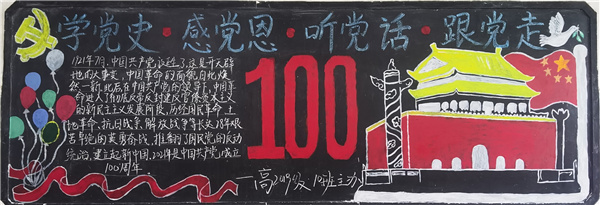 学党史·感党恩·听党话·跟党走
1921年7月,中国共产党诞生了,这是开天辟
地的大事变,中国革命的面貌自此焕
然一新,此后在中国共产党的领导下,中国革
命进入了彻底反帝反封建反官僚资本主义
的新民主主义发展阶段,历经国民革命、土
地革命、抗日战争、解放战争等长达28年艰
苦卓绝的英勇奋战,推翻了国民党的反动
统治,建立起新中国,2021年是中国共产党成立
100周年
100
—高2019级12班主办